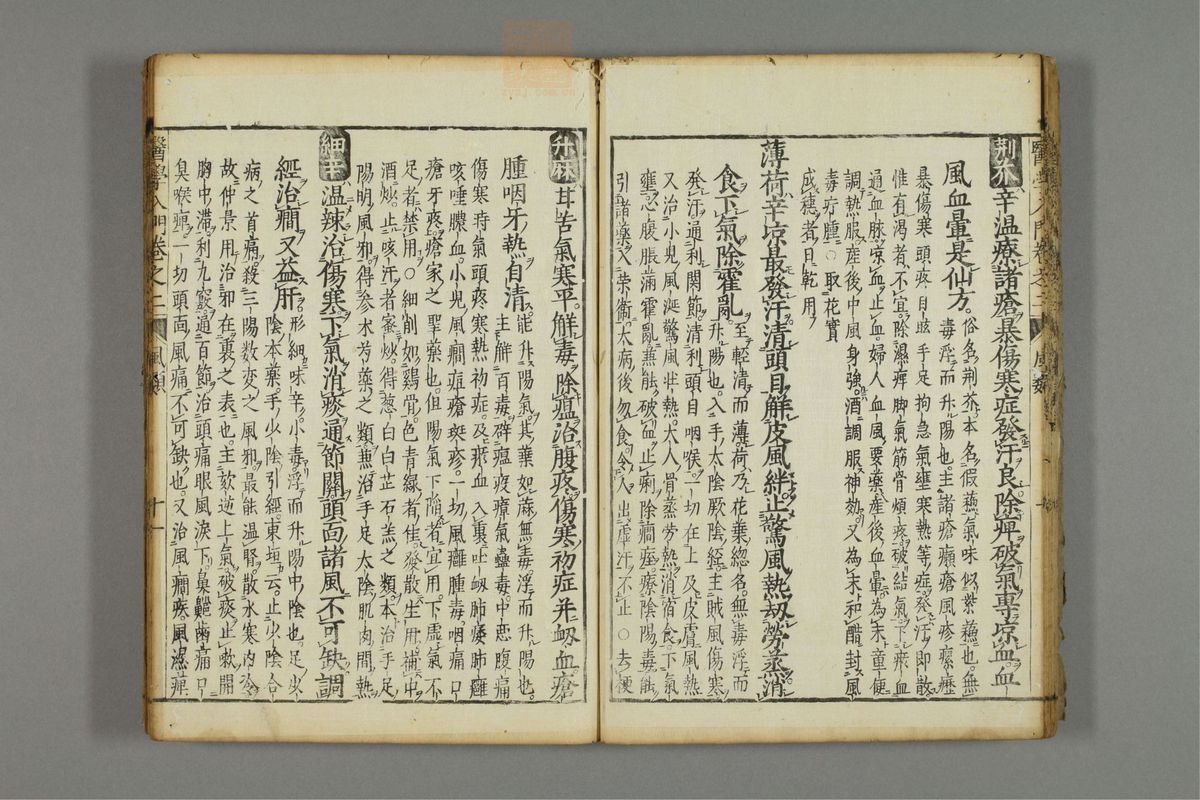 荆芥辛温療諸瘡暴傷寒症發汗良除痺破氣專凉血血
風血暈是仙方俗名荆芥本名假蘇氣味似紫蘇也無
毒浮而升陽也主諸瘡癩瘡風疹瘰癧
暴傷寒頭疼目眩手足拘急氣壅寒熱等症發汗即散
惟有渴者不宜除濕痺脚氣筋骨煩疼破結氣下瘀血
通血脉凉血止血婦人血風要藥產後血暈為末童便
調熱服產後中風身強酒調服神効又為末和醋封風
毒疔腫○取花實
成穗者日乾用
薄荷辛凉最發汗清頭目解皮風絆止驚風熱刼勞蒸消
食下氣除霍亂至輕清而薄荷乃花葉總名無毒浮而
升陽也入手太陰厥陰經主賊風傷寒
發汗通利關節清利頭目咽喉一切在上及皮膚風熱
又治小兒風涎驚風壮熱大人骨蒸勞熱消宿食下氣
壅心腹脹滿霍亂兼能破血止痢除癇痓療陰陽毒能
引諸藥入榮衛大病後勿食令人出虛汗不止○去梗
升麻甘苦氣寒平解毒除瘟治腹疼傷寒初症并衂血瘡
腫咽牙熱自清能升陽氣其葉如麻無毒浮而升陽也
主解百毒辟瘟疫瘴氣蠱毒中惡腹痛
傷寒時氣頭疼寒熱初症及瘀血入裏吐衂肺痿肺癰
咳唾膿血小兒風癇痘瘡斑疹一切風癰腫毒咽痛口
瘡牙疼瘡家之聖藥也但陽氣下陷者宜用下虛氣不
足者禁用○細削如鷄骨色青綠者佳發散生用補中
酒炒止咳汗者蜜炒得葱白白芷石羔之類本治手足
陽明風邪得參术芍藥之類兼治手足太陰肌肉間熱
細辛温辣治傷寒下氣消痰通節關頭面諸風不可缺調
經治癇又益肝形細味辛小毒浮而升陽中陰也足少
陰本藥手少陰引經東垣云止少陰合
病之首痛殺三陽数变之風邪最能温腎散水寒內冷
故仲景用治邪在裏之表也主欬逆上氣破痰止嗽開
胸中滯利九竅通百節治頭痛眼風淚下鼻齆齒痛口
臭喉痺一切頭面風痛不可缺也又治風癇疾風濕痺
醫學入門卷之二
風類
十一